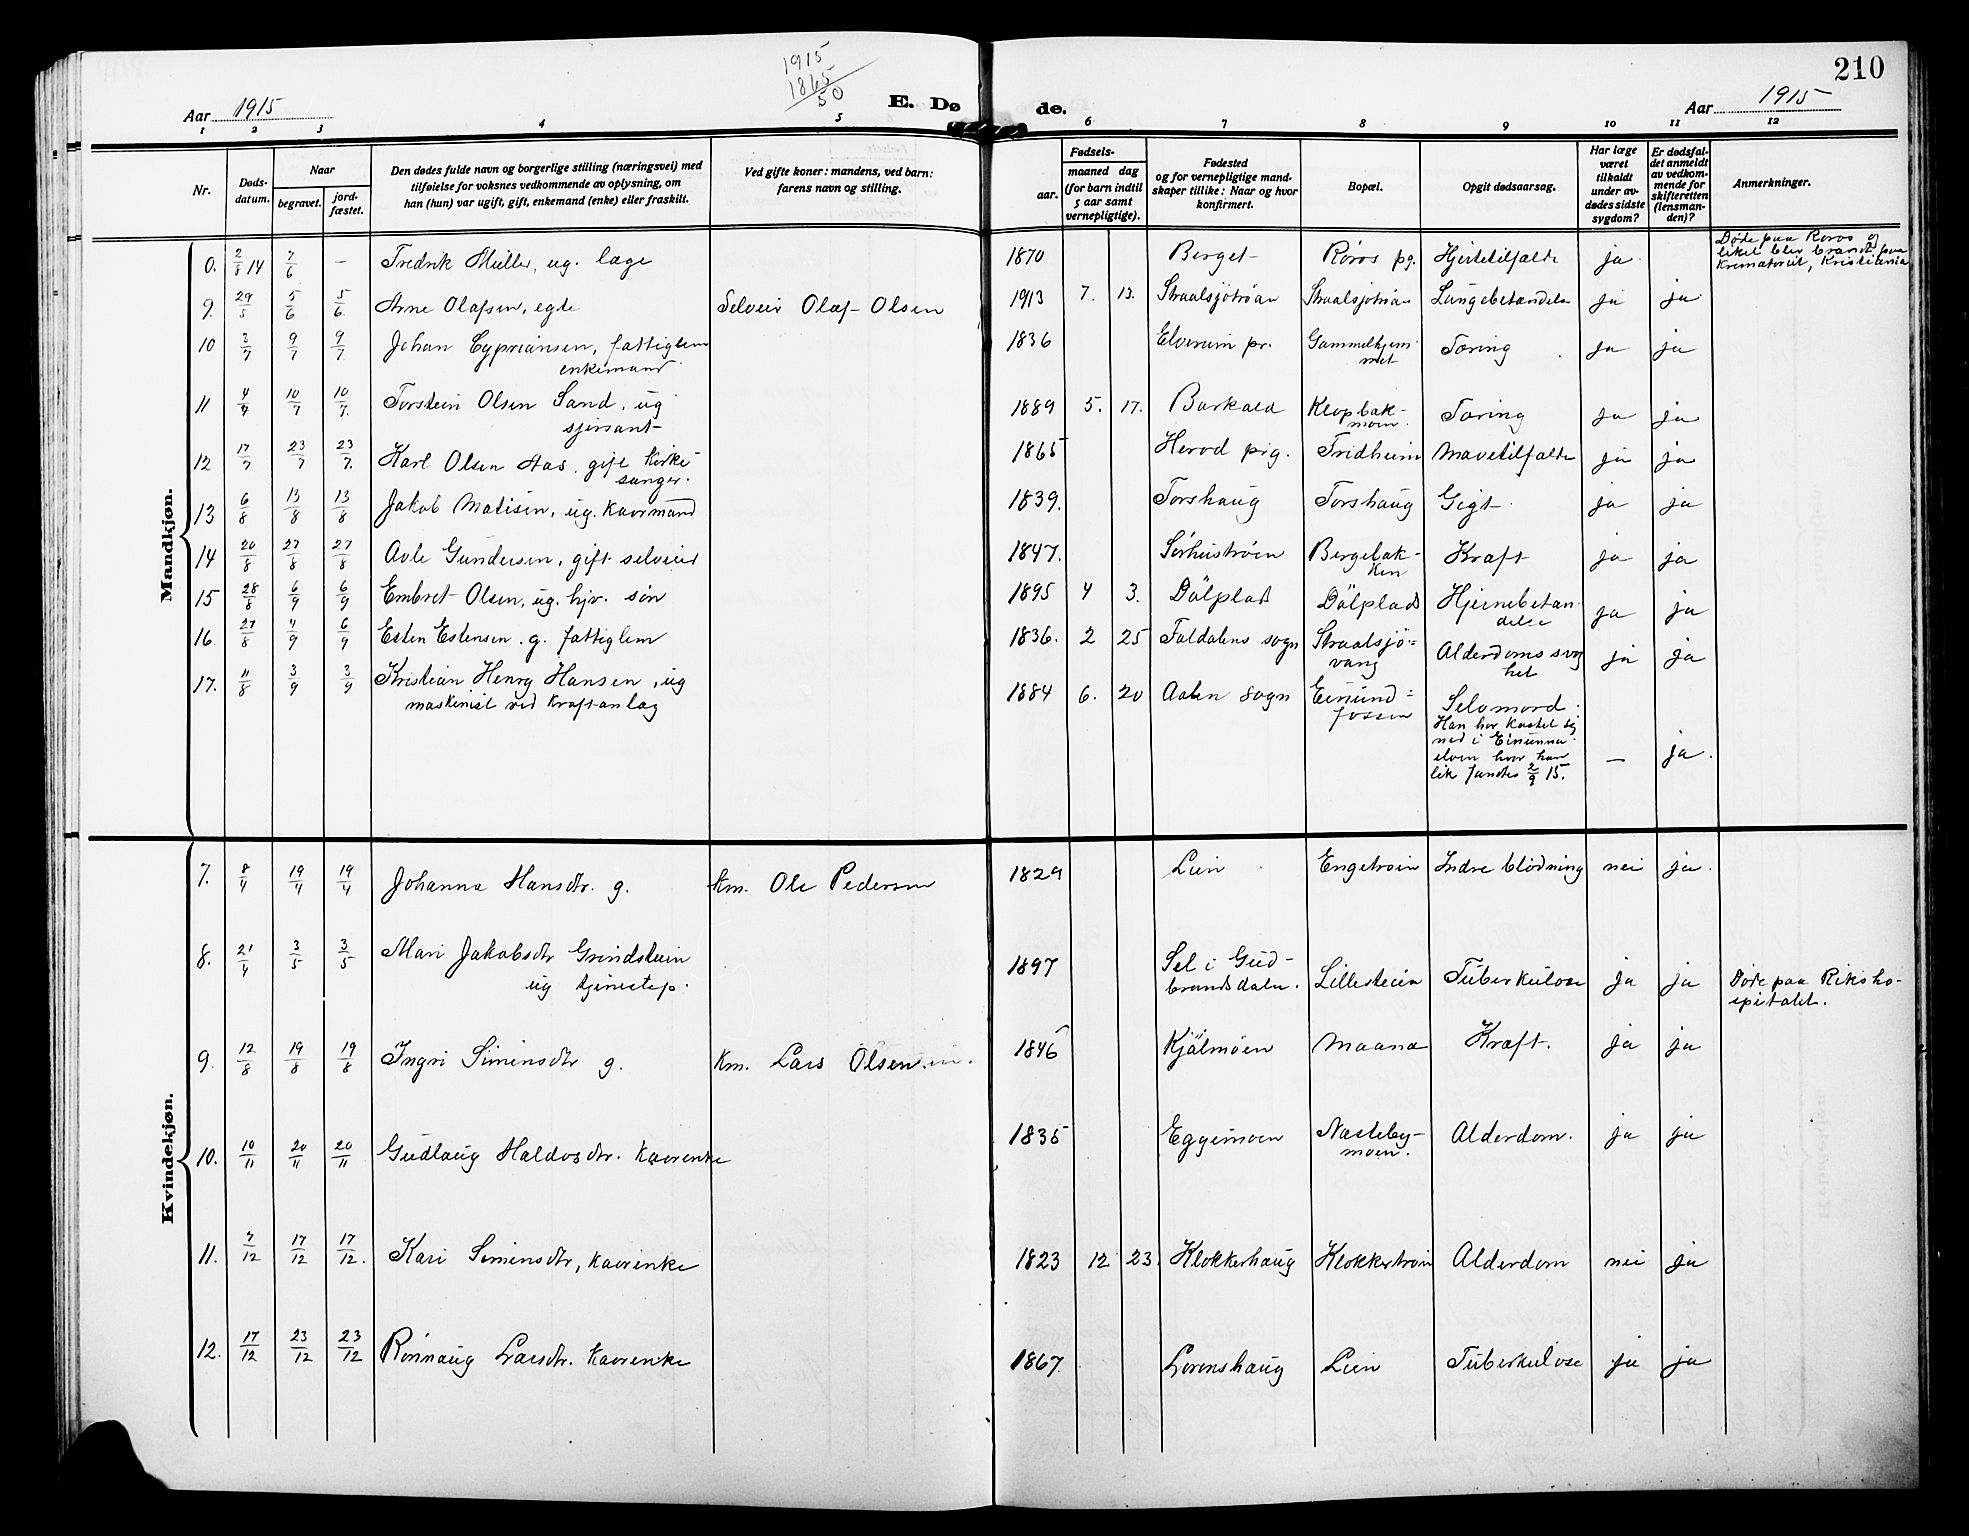 1915
1865
50
210
Aar 1915
E. Dø
de.
Aar 1915
1 2 3 4 5 6 7 8 9 10 11 12
Nr.
Døds-
datum.
Naar
begravet.
jord-
fæstet.
Den dødes fulde navn og borgerlige stilling (næringsvei) med
tilføielse for voksnes vedkommende av oplysning, om
han (hun) var ugift, gift, enkemand (enke) eller fraskilt.
Ved gifte koner: mandens, ved barn:
farens navn og stilling.
Fødsels-
aar.
maaned dag
(for barn indtil
5 aar samt
vernepligtige).
Fødested
og for vernepligtige mand-
skaper tillike: Naar og hvor
konfirmert.
Bopæl.
Opgit dødsaarsag.
Har læge
været
tilkaldt
under av-
dødes sidste
sygdom?
Er dødsfal-
det anmeldt
av vedkom-
mende for
skifteretten
(lensman-
den)?
Anmerkninger.
Mandkjøn.
0. 2/8 14 7/6 — Fredrik Müller, ug. læge 1870 Berget Røros pg. Hjertetilfælde ja Døde paa Røros og
liket blev brændt paa
Krematoriet, Kristiania
9. 29/5 5/6 5/6 Arne Olafsen, egte Selveier Olaf Olsen 1913 7. 13. Straalsjøtrøan Straalsjøtrøan Lungebetændelse ja ja
10 3/7 9/7 9/7 Johan Cypriansen, fattiglem
enkemand 1836 Elverum pr. Gammelhjem-
met Tæring ja ja
11 4/7 10/7 10/7. Torstein Olsen Sand, ug
sjersant 1889 5. 17. Barkald Klopbak-
moen. Tæring ja ja
12 17/7 23/7 23/7. Karl Olsen Aas, gift kirke-
sanger. 1865 Herød prg. Fridheim Mavetilfælde ja ja
13 6/8 13/8 13/8 Jakob Matisen, ug. kaarmand 1839. Torshaug Torshaug Gigt ja ja
14 20/8 27/8 27/8 Avle Gundersen, gift selveier 1847. Sørhustrøen Bergebak-
ken Kræft ja ja
15 28/8 6/9 6/9 Embret Olsen, ug. hjv. søn 1895 4 3. Dölplads Dölplads Hjernebetæn-
delse ja ja
16. 27/8 4/9 6/9 Esten Estensen. g. fattiglem 1836. 2 25 Foldalens sogn Straalsjö-
vang Alderdomssvag
het ja ja
17. 11/8 3/9 3/9 Kristian Henry Hansen, ug
maskinist ved kraftanlæg 1884 6. 20 Aalen sogn Einund-
fossen Selvmord.
Han har kastet sig
ned i Einunna
elven hvor han
lik fandtes 2/9 15. — ja.
Kvindekjøn.
7. 8/4 19/4 19/4 Johanna Hansdtr. g. km. Ole Pedersen 1829 Lien Engetrøen Indre blödning nei ja.
8. 21/4 3/5 3/5 Mari Jakobsdtr Grindstuen
ug tjenestep. 1897 Sel i Gud-
brandsdalen. Lillesteien Tuberkulose ja ja Døde paa Riksho-
spitalet.
9. 12/8 19/8 19/8 Ingri Simensdtr g. km. Lars Olsen 1846 Kjölmöen Maana Kræft. ja ja
10. 10/11 20/11 20/11 Gudlaug Haldosdtr. kaarenke 1835 Eggemoen Næsteby-
moen. Alderdom. ja ja
11. 7/12 17/12 17/12. Kari Simensdtr, kaarenke 1823 12 23. Klokkerhaug Klokkertrøen Alderdom nei ja
12. 17/12 23/12 23/12 Rönnaug Larsdtr. kaarenke 1867. Lorenshaug Lien Tuberkulose ja ja